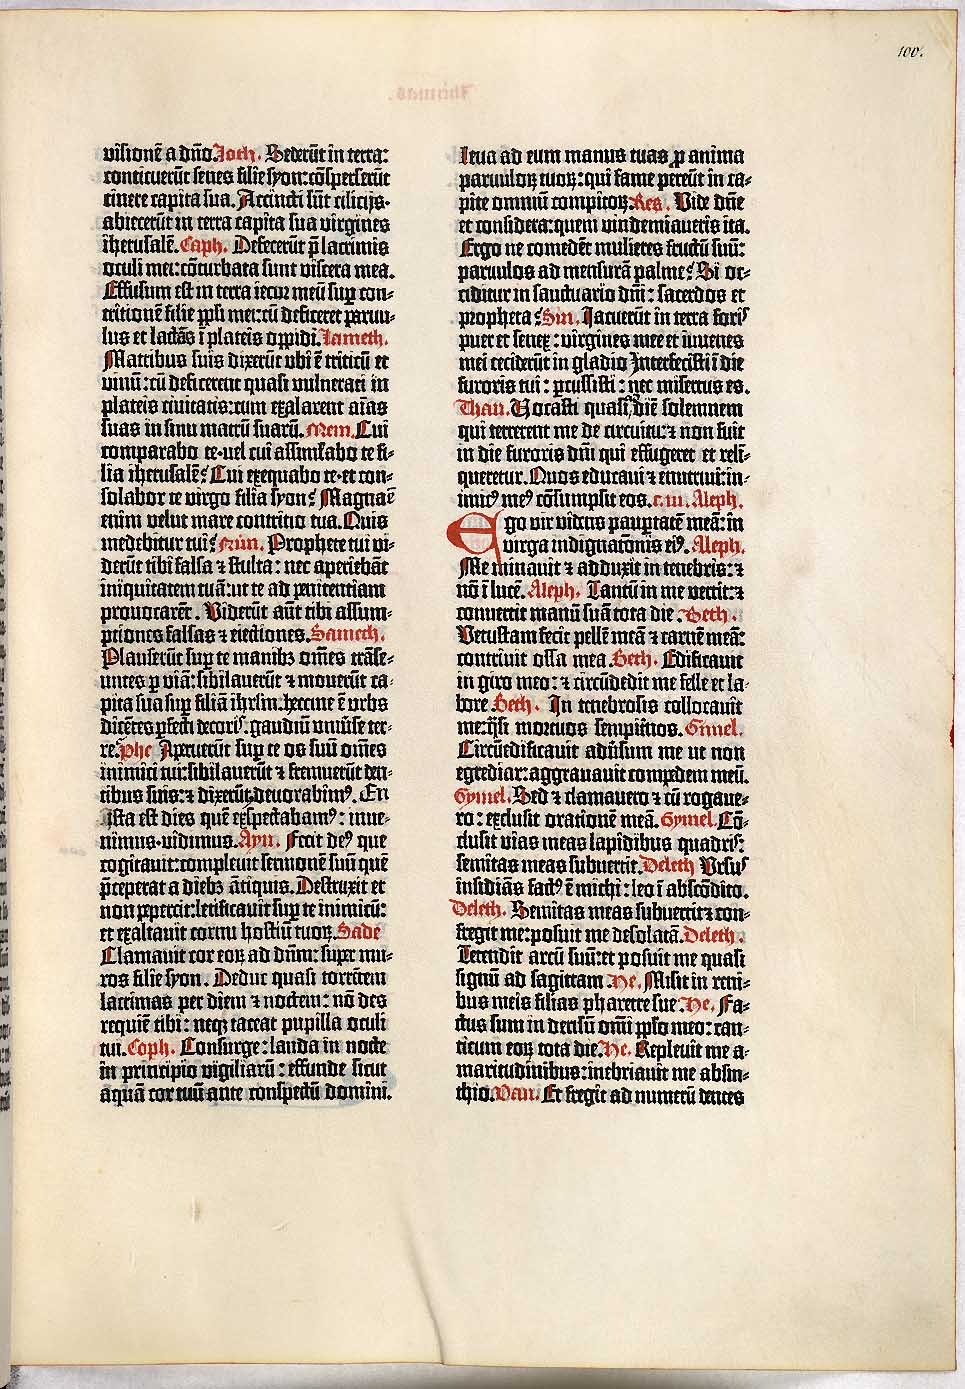 100.
visionē a dño. Joth. Sederūt in terra:
conticuerūt senes filie syon: cōsperserūt
cinere capita sua. Accincti sūt cilicijs·
abiecerūt in terra capita sua virgines
iherusalē. Caph. Defecerūt p̄ lacrimis
oculi mei: cōturbata sunt viscera mea.
Effusum est in terra iecor meū sup con-
tritionē filie ppli mei: cū deficeret paruu-
lus et lactās ī plateis oppidi. Lameth.
Matribus suis dixerūt vbi ē triticū et
vinū: cū deficerent quasi vulnerati in
plateis ciuitatis: cum exalarent aīas
suas in sinu matrū suarū. Mem. Cui
comparabo te· vel cui assimilabo te fi-
lia iherusalē? Cui exequabo te· et con-
solabor te virgo filia syon? Magna ē
enim velut mare contritio tua. Quis
medebitur tui? Nun. Prophete tui vi-
derūt tibi falsa ⁊ stulta: nec aperiebāt
iniquitatem tuā: ut te ad penitentiam
prouocarēt. Viderūt aūt tibi assum-
ptiones falsas ⁊ eiectiones. Samech.
Plauserūt sup te manibꝫ om̄es trāse-
untes p viā: sibilauerūt ⁊ mouerūt ca-
pita sua sup filiā ihrlm: heccine ē vrbs
dicētes pfecti decoris. gaudiū vniuse ter-
re? Phe Aperuerūt sup te os suū om̄es
inimici tui: sibilauerūt ⁊ fremuerūt den-
tibus suis: ⁊ dixerūt, deuorabimꝰ. En
ista est dies quē exspectabamꝰ: inue-
nimus· vidimus. Ayn. Fecit deꝰ que
cogitauit: compleuit sermonē suū quē
p̄ceperat a diebꝫ ātiquis. Destruxit et
non pepercit: letificauit sup te inimicū:
et exaltauit cornu hostiū tuoꝝ. Sade
Clamauit cor eoꝝ ad dn̄m: super mu-
ros filie syon. Deduc quasi torrētem
lacrimas per diem ⁊ noctem: nō des
requiē tibi: neqꝫ taceat pupilla oculi
tui. Coph. Consurge: lauda in nocte
in principio vigiliarū: effunde sicut
aquā cor tuū ante conspectū domini.
leua ad eum manus tuas ꝓ anima
paruuloꝝ tuoꝝ: qui fame pereūt in ca-
pite omniū compitoꝝ. Res. Vide dn̄e
et considera: quem vindemiaueris ita.
Ergo ne comedēt mulieres fructū suū:
paruulos ad mensurā palme? Si oc-
ciditur in sanctuario dn̄i: sacerdos et
propheta? Sin. Jacuerūt in terra foris
puer et senex: virgines mee et iuuenes
mei ceciderūt in gladio Interfecisti ī die
furoris tui: pcussisti: nec misertus es.
Thau. Vocasti quasi diē solemnem
qui terrerent me de circuitu: ⁊ non fuit
in die furoris dn̄i qui effugeret et reli-
queretur. Quos educaui ⁊ enutriui: in-
imicꝰ meꝰ cōsumpsit eos. c. iii. Aleph.
Ego vir videns paupertatē meā: in
virga indignatōnis eiꝰ. Aleph.
Me minauit ⁊ adduxit in tenebris: ⁊
nō ī lucē. Aleph. Tantū in me vertit: ⁊
conuertit manū suā tota die. Beth.
Vetustam fecit pellē meā ⁊ carnē meā:
contriuit ossa mea. Beth. Edificauit
in giro meo: ⁊ circūdedit me felle et la-
bore Beth. In tenebrosis collocauit
me: q̄si mortuos sempit̄nos. Gimel.
Circūedificauit aduersum me ut non
egrediar: aggrauauit compedem meū.
Gymel. Sed ⁊ clamauero ⁊ cū rogaue-
ro: exclusit orationē meā. Gymel Cō-
clusit vias meas lapidibus quadris:
semitas meas subuertit. Deleth Vrsus
insidiās factꝰ ē michi: leo ī abscōdito.
Deleth. Semitas meas subuertit ⁊ con-
fregit me: posuit me desolatā. Deleth.
Tetendit arcū suū: et posuit me quasi
signū ad sagittam He. Misit in reni-
bus meis filias pharetre sue. He. Fa-
ctus sum in derisū om̄i pplo meo: can-
ticum eoꝝ tota die. He. Repleuit me a-
maritudinibus: inebriauit me absin-
thio. Vau. Et fregit ad numerū dentes